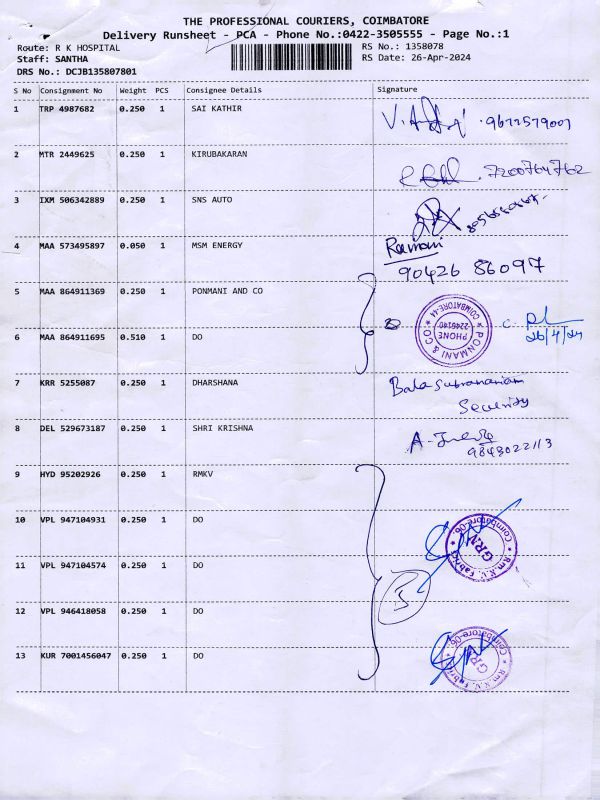 THE PROFESSIONAL COURIERS, COIMBATORE
Delivery Runsheet - PCA - Phone No.:0422-3505555 - Page No.:1
Route: R K HOSPITAL RS No.: 1358078
Staff: SANTHA RS Date: 26-Apr-2024
DRS No.: DCJB135807801
S No Consignment No Weight PCS Consignee Details Signature
1 TRP 4987682 0.250 1 SAI KATHIR
2 MTR 2449625 0.250 1 KIRUBAKARAN 7200764762
3 IXM 506342889 0.250 1 SNS AUTO
4 MAA 573495897 0.050 1 MSM ENERGY Ramani
90426 86097
5 MAA 864911369 0.250 1 PONMANI AND CO
PONMANI & CO COIMBATORE-44 PHONE 2246140
26/4/24
6 MAA 864911695 0.510 1 DO
7 KRR 5255087 0.250 1 DHARSHANA Bala Subramaniam
Security
8 DEL 529673187 0.250 1 SHRI KRISHNA
9843022113
9 HYD 95202926 0.250 1 RMKV
10 VPL 947104931 0.250 1 DO
Coimbatore-06. GRN Rm.K.V. Fabric
11 VPL 947104574 0.250 1 DO
12 VPL 946418058 0.250 1 DO
13 KUR 7001456047 0.250 1 DO
Coimbatore-06. GRN Rm.K.V. Fabric